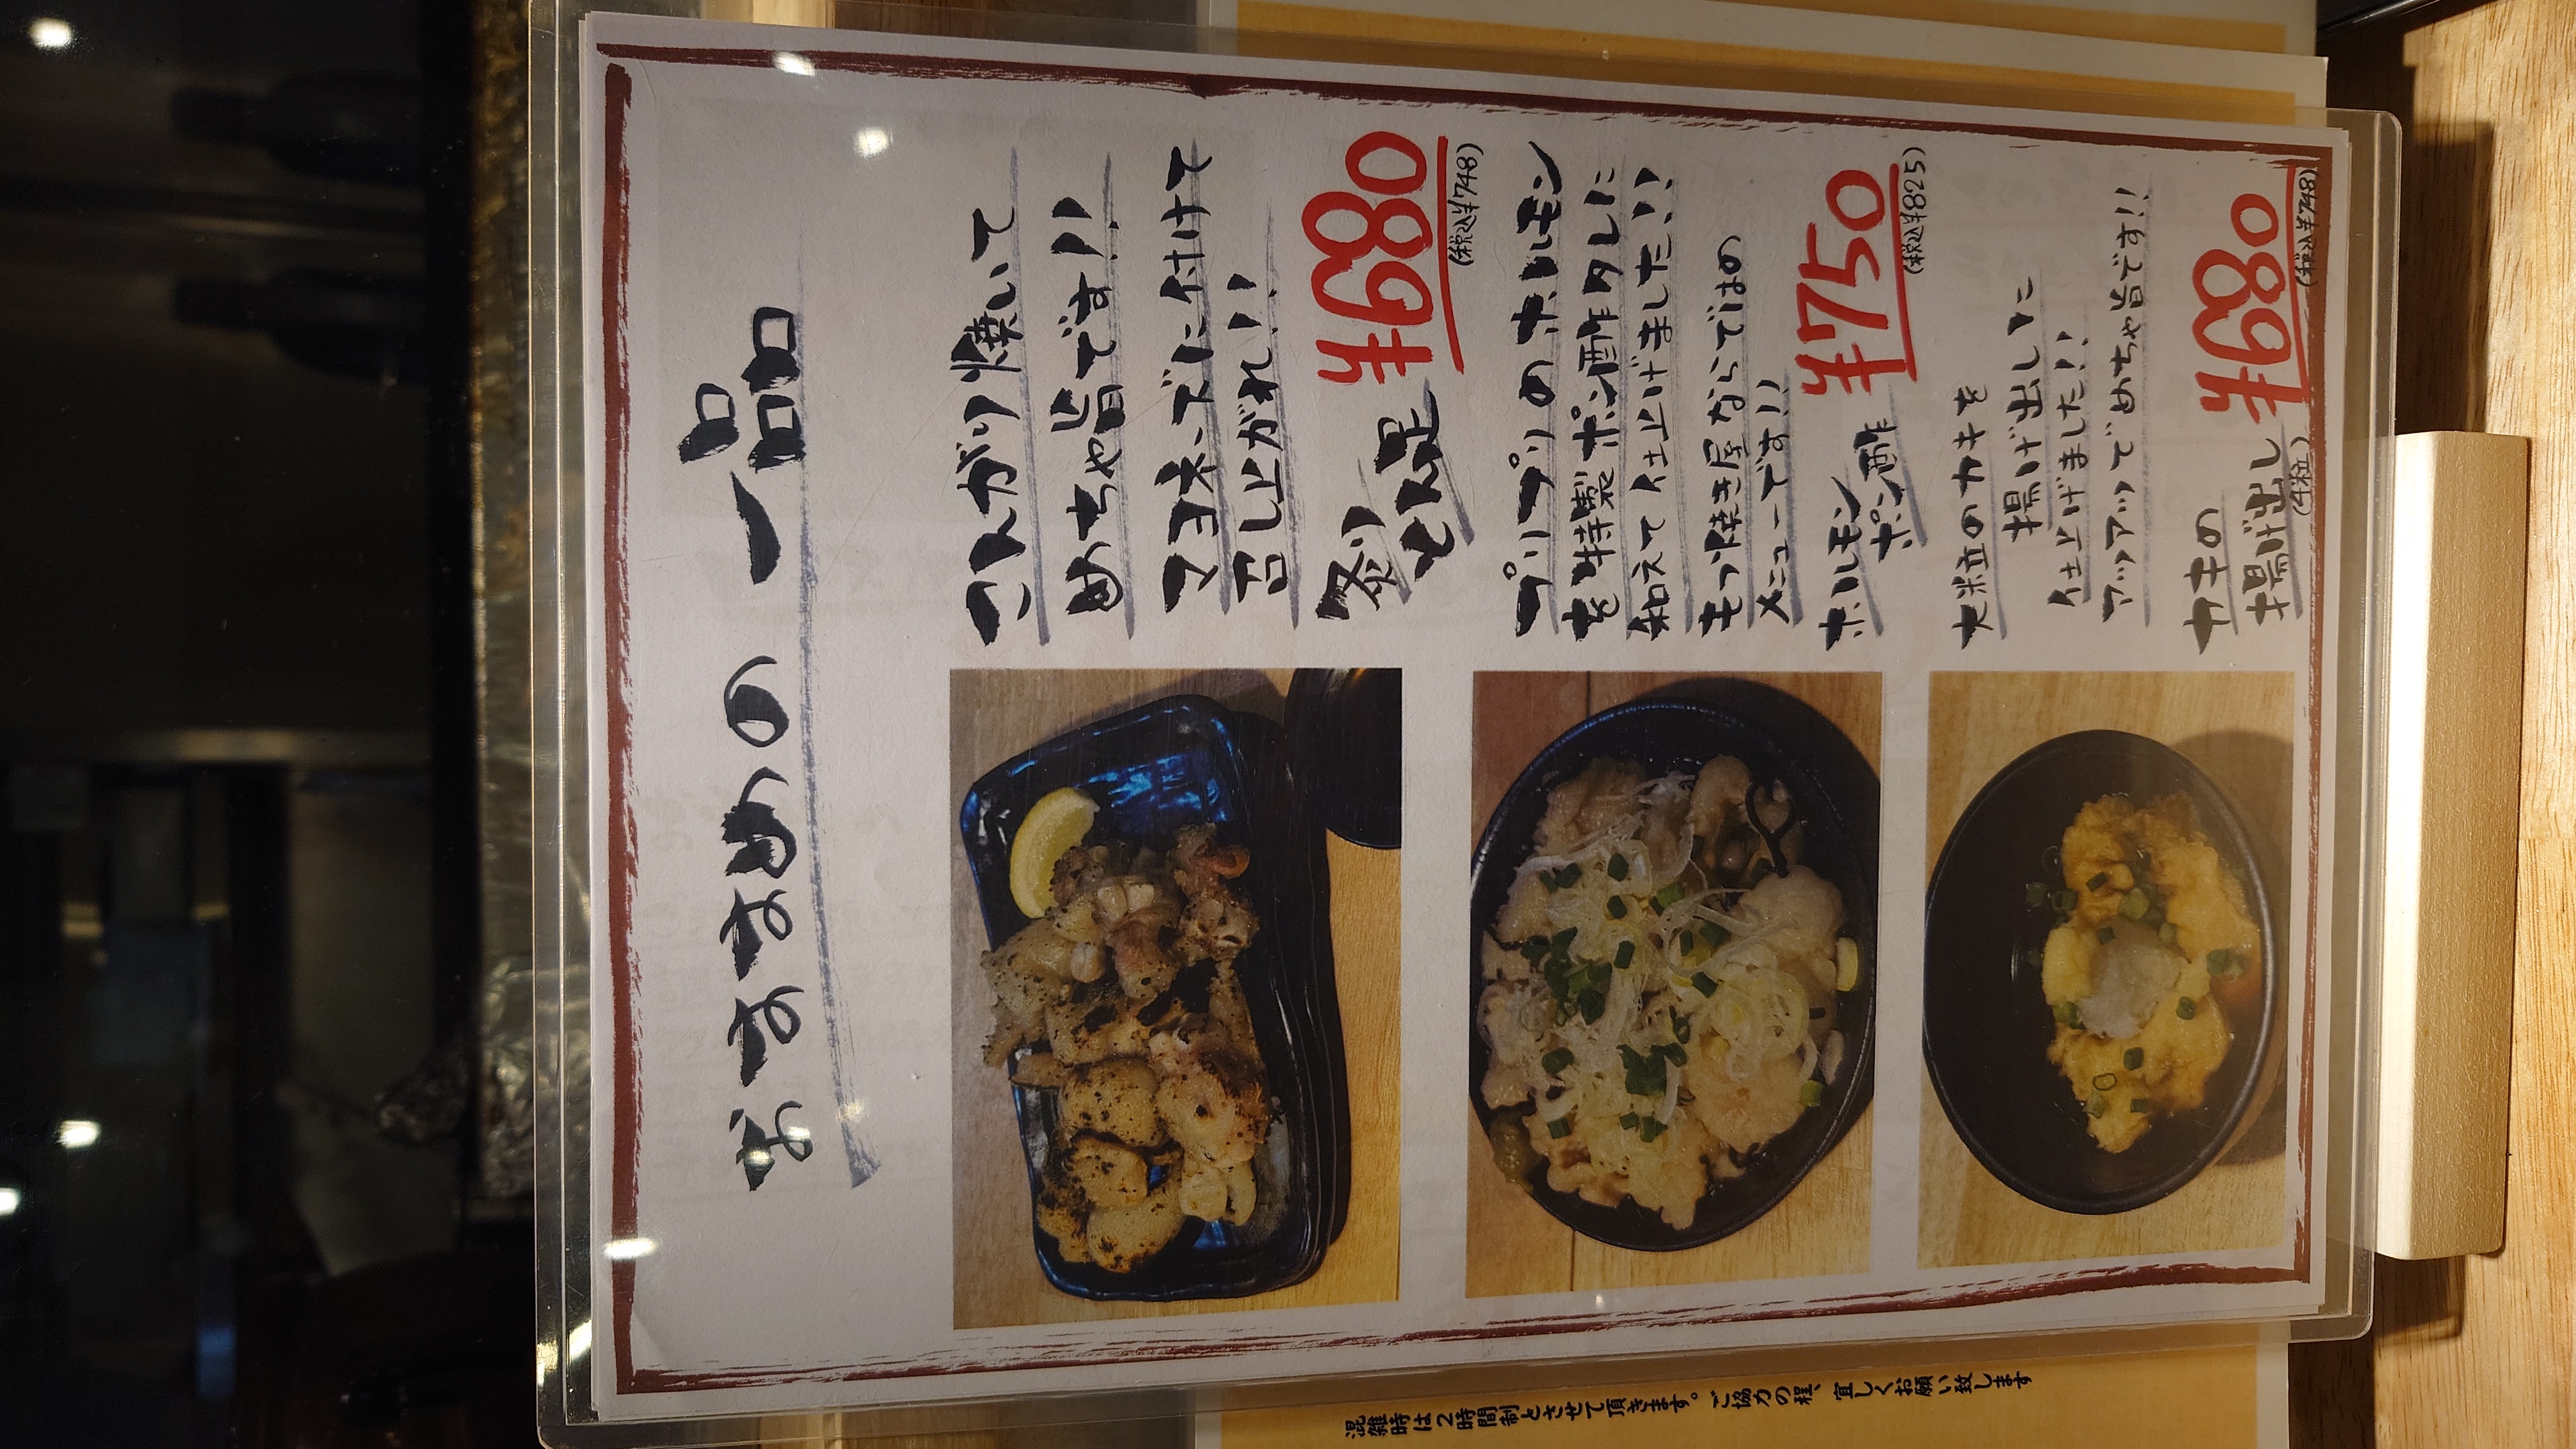 おすすめの一品
コンガリ焼いて
めちゃ旨です!!
マヨネーズに付けて
召し上がれ!!
炙り
とん足
¥680
(税込¥748)
プリプリのホルモン
を特製ポン酢タレに
和えて仕上げました!!
モツ焼き屋ならではの
メニューです!!
ホルモン
ポン酢
¥750
(税込¥825)
大粒のカキを
揚げ出しに
仕上げました!!
アツアツでめちゃ旨です!!
カキの
揚げ出し
(4粒)
¥680
(税込¥748)
混雑時は2時間制とさせて頂きます。ご協力の程、宜しくお願い致します